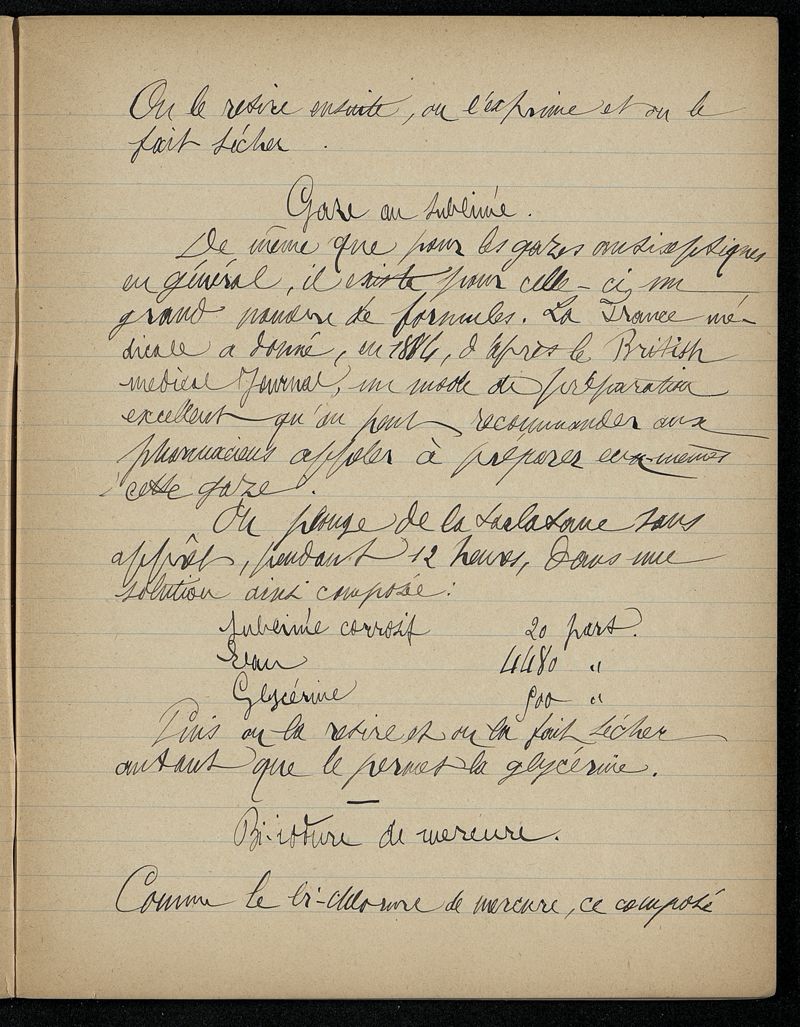 On le retire ensuite, on l'exprime et on le
fait sécher.
Gaze au sublimé.
De même que pour les gazes antiseptiques
en général, il existe pour celle-ci un
grand nombre de formules. La France mé-
dicale a donné, en 1884, d'après le British
medical Journal, un mode de préparation
excellent qu'on peut recommander aux
pharmaciens appelés à préparer eux-mêmes
cette gaze.
On plonge de la tarlatane sans
apprêt, pendant 12 heures, dans une
solution ainsi composée:
Sublimé corrosif 20 part.
Eau 4480 "
Glycérine 500 "
Puis on la retire et on la fait sécher
autant que le permet la glycérine.
Bi-iodure de mercure.
Comme le bi-chlorure de mercure, ce composé